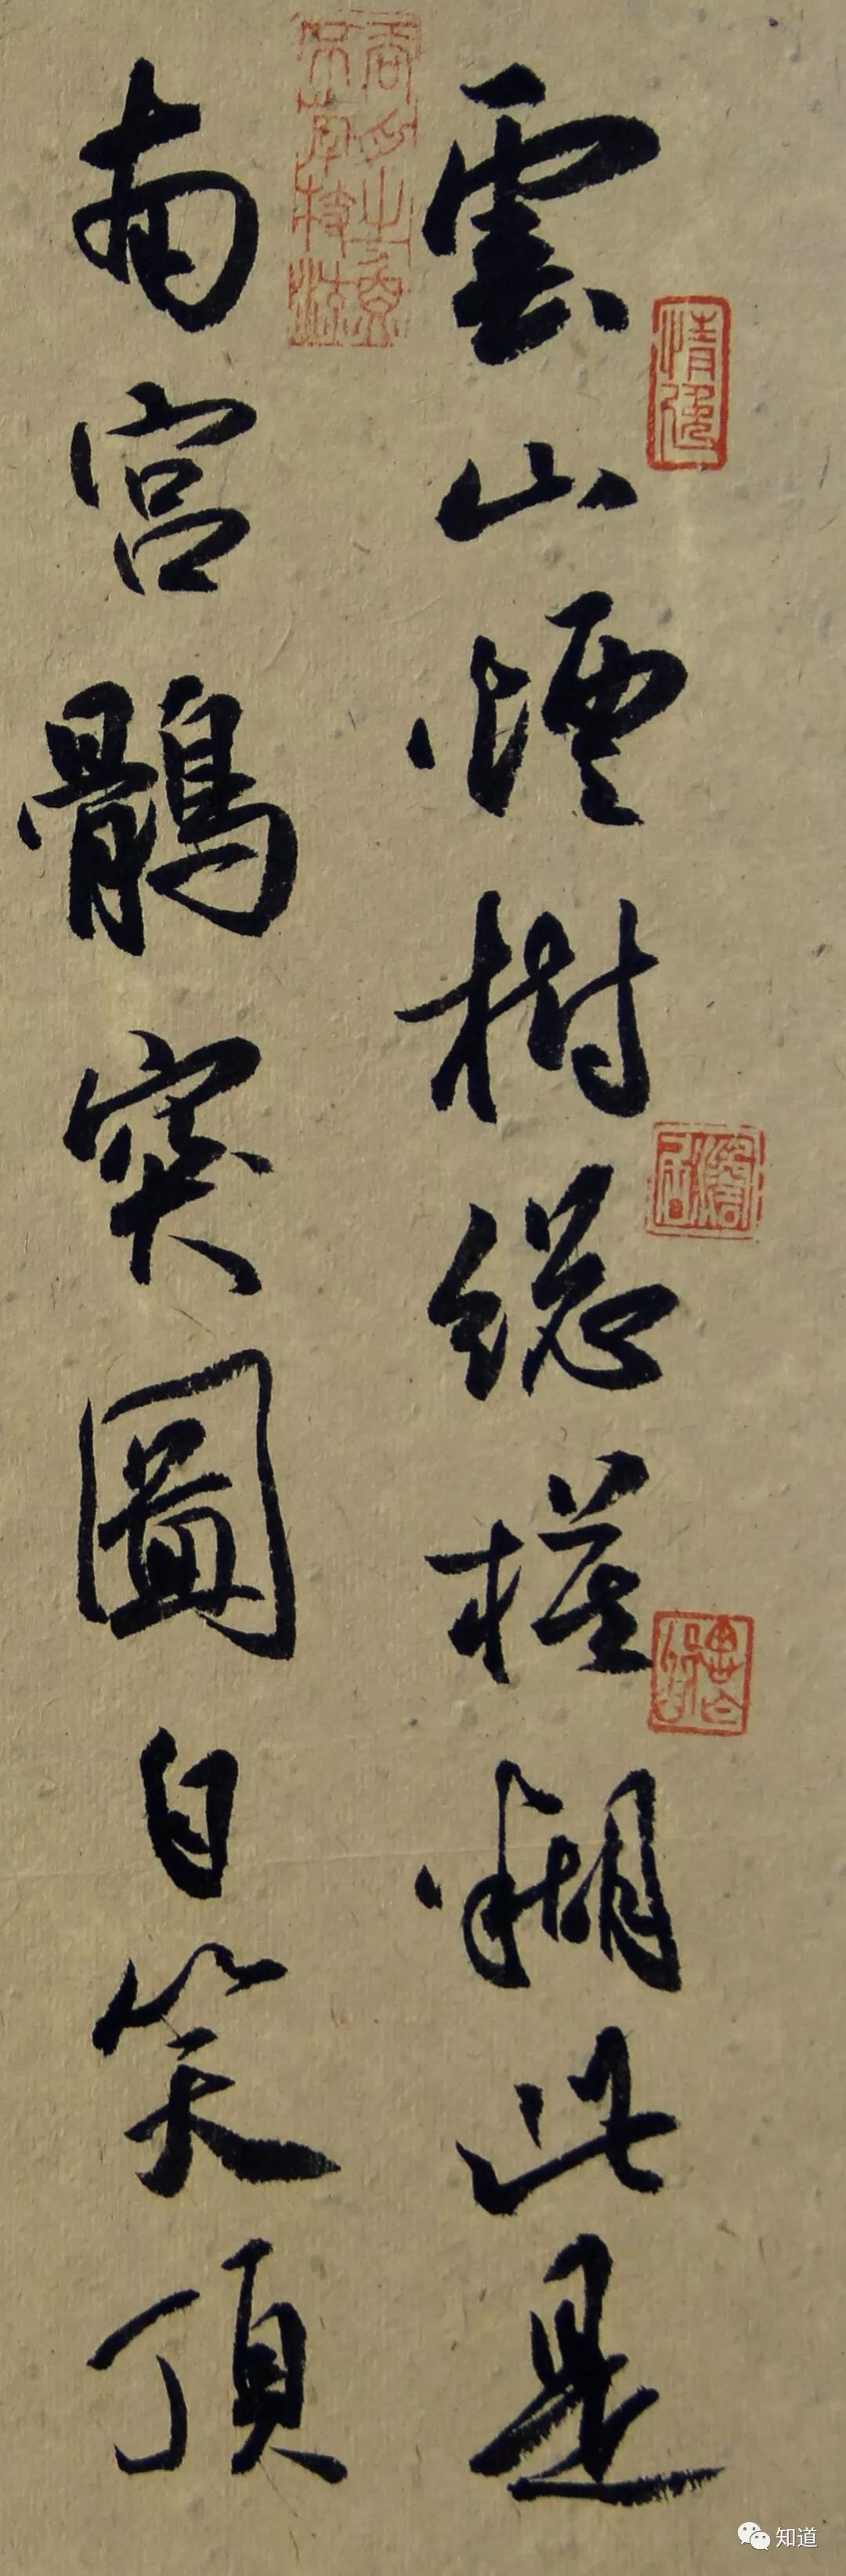 雲山煙樹總模糊此是
南宮鶻突圖自笑頂
情逸
知道